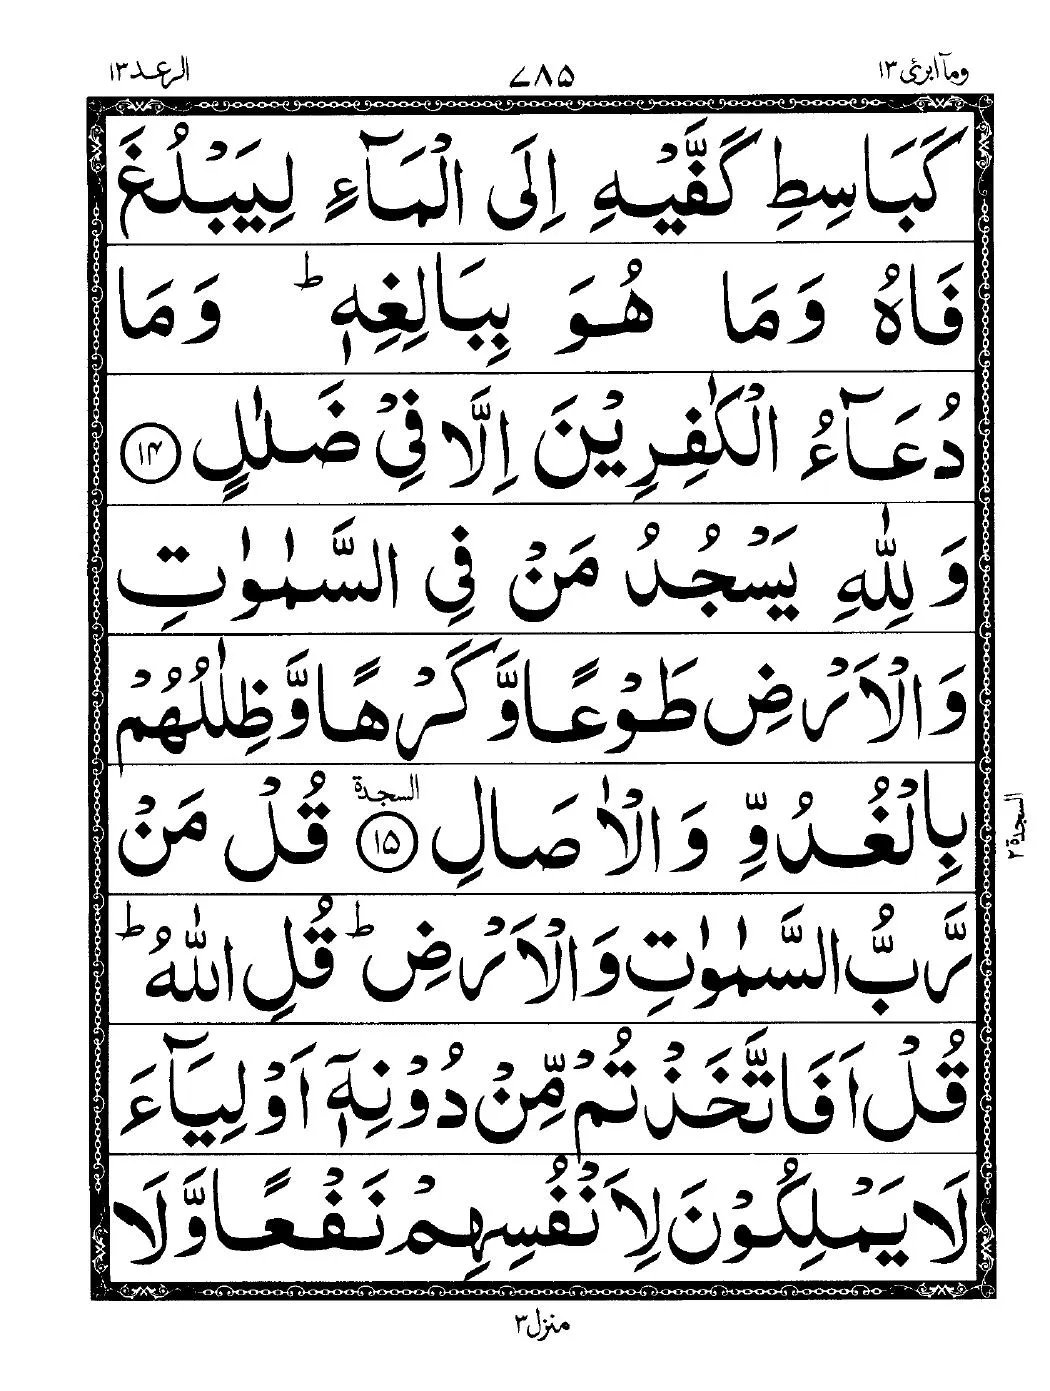 ومآ ابرئ ۱۳
۷۸۵
الرعد ۱۳
كَبَاسِطِ كَفَّيْهِ اِلَى الْمَآءِ لِيَبْلُغَ
فَاهُ وَمَا هُوَ بِبَالِغِهٖ ؕ وَمَا
دُعَآءُ الْكٰفِرِيْنَ اِلَّا فِيْ ضَلٰلٍ ۱۴
وَلِلّٰهِ يَسْجُدُ مَنْ فِي السَّمٰوٰتِ
وَالْاَرْضِ طَوْعًا وَّكَرْهًا وَّظِلٰلُهُمْ
بِالْغُدُوِّ وَالْاٰصَالِ ۱۵ السجدة قُلْ مَنْ
رَّبُّ السَّمٰوٰتِ وَالْاَرْضِ ؕ قُلِ اللّٰهُ ؕ
قُلْ اَفَاتَّخَذْتُمْ مِّنْ دُوْنِهٖٓ اَوْلِيَآءَ
لَا يَمْلِكُوْنَ لِاَنْفُسِهِمْ نَفْعًا وَّلَا
السجدة ۲
منزل ۳